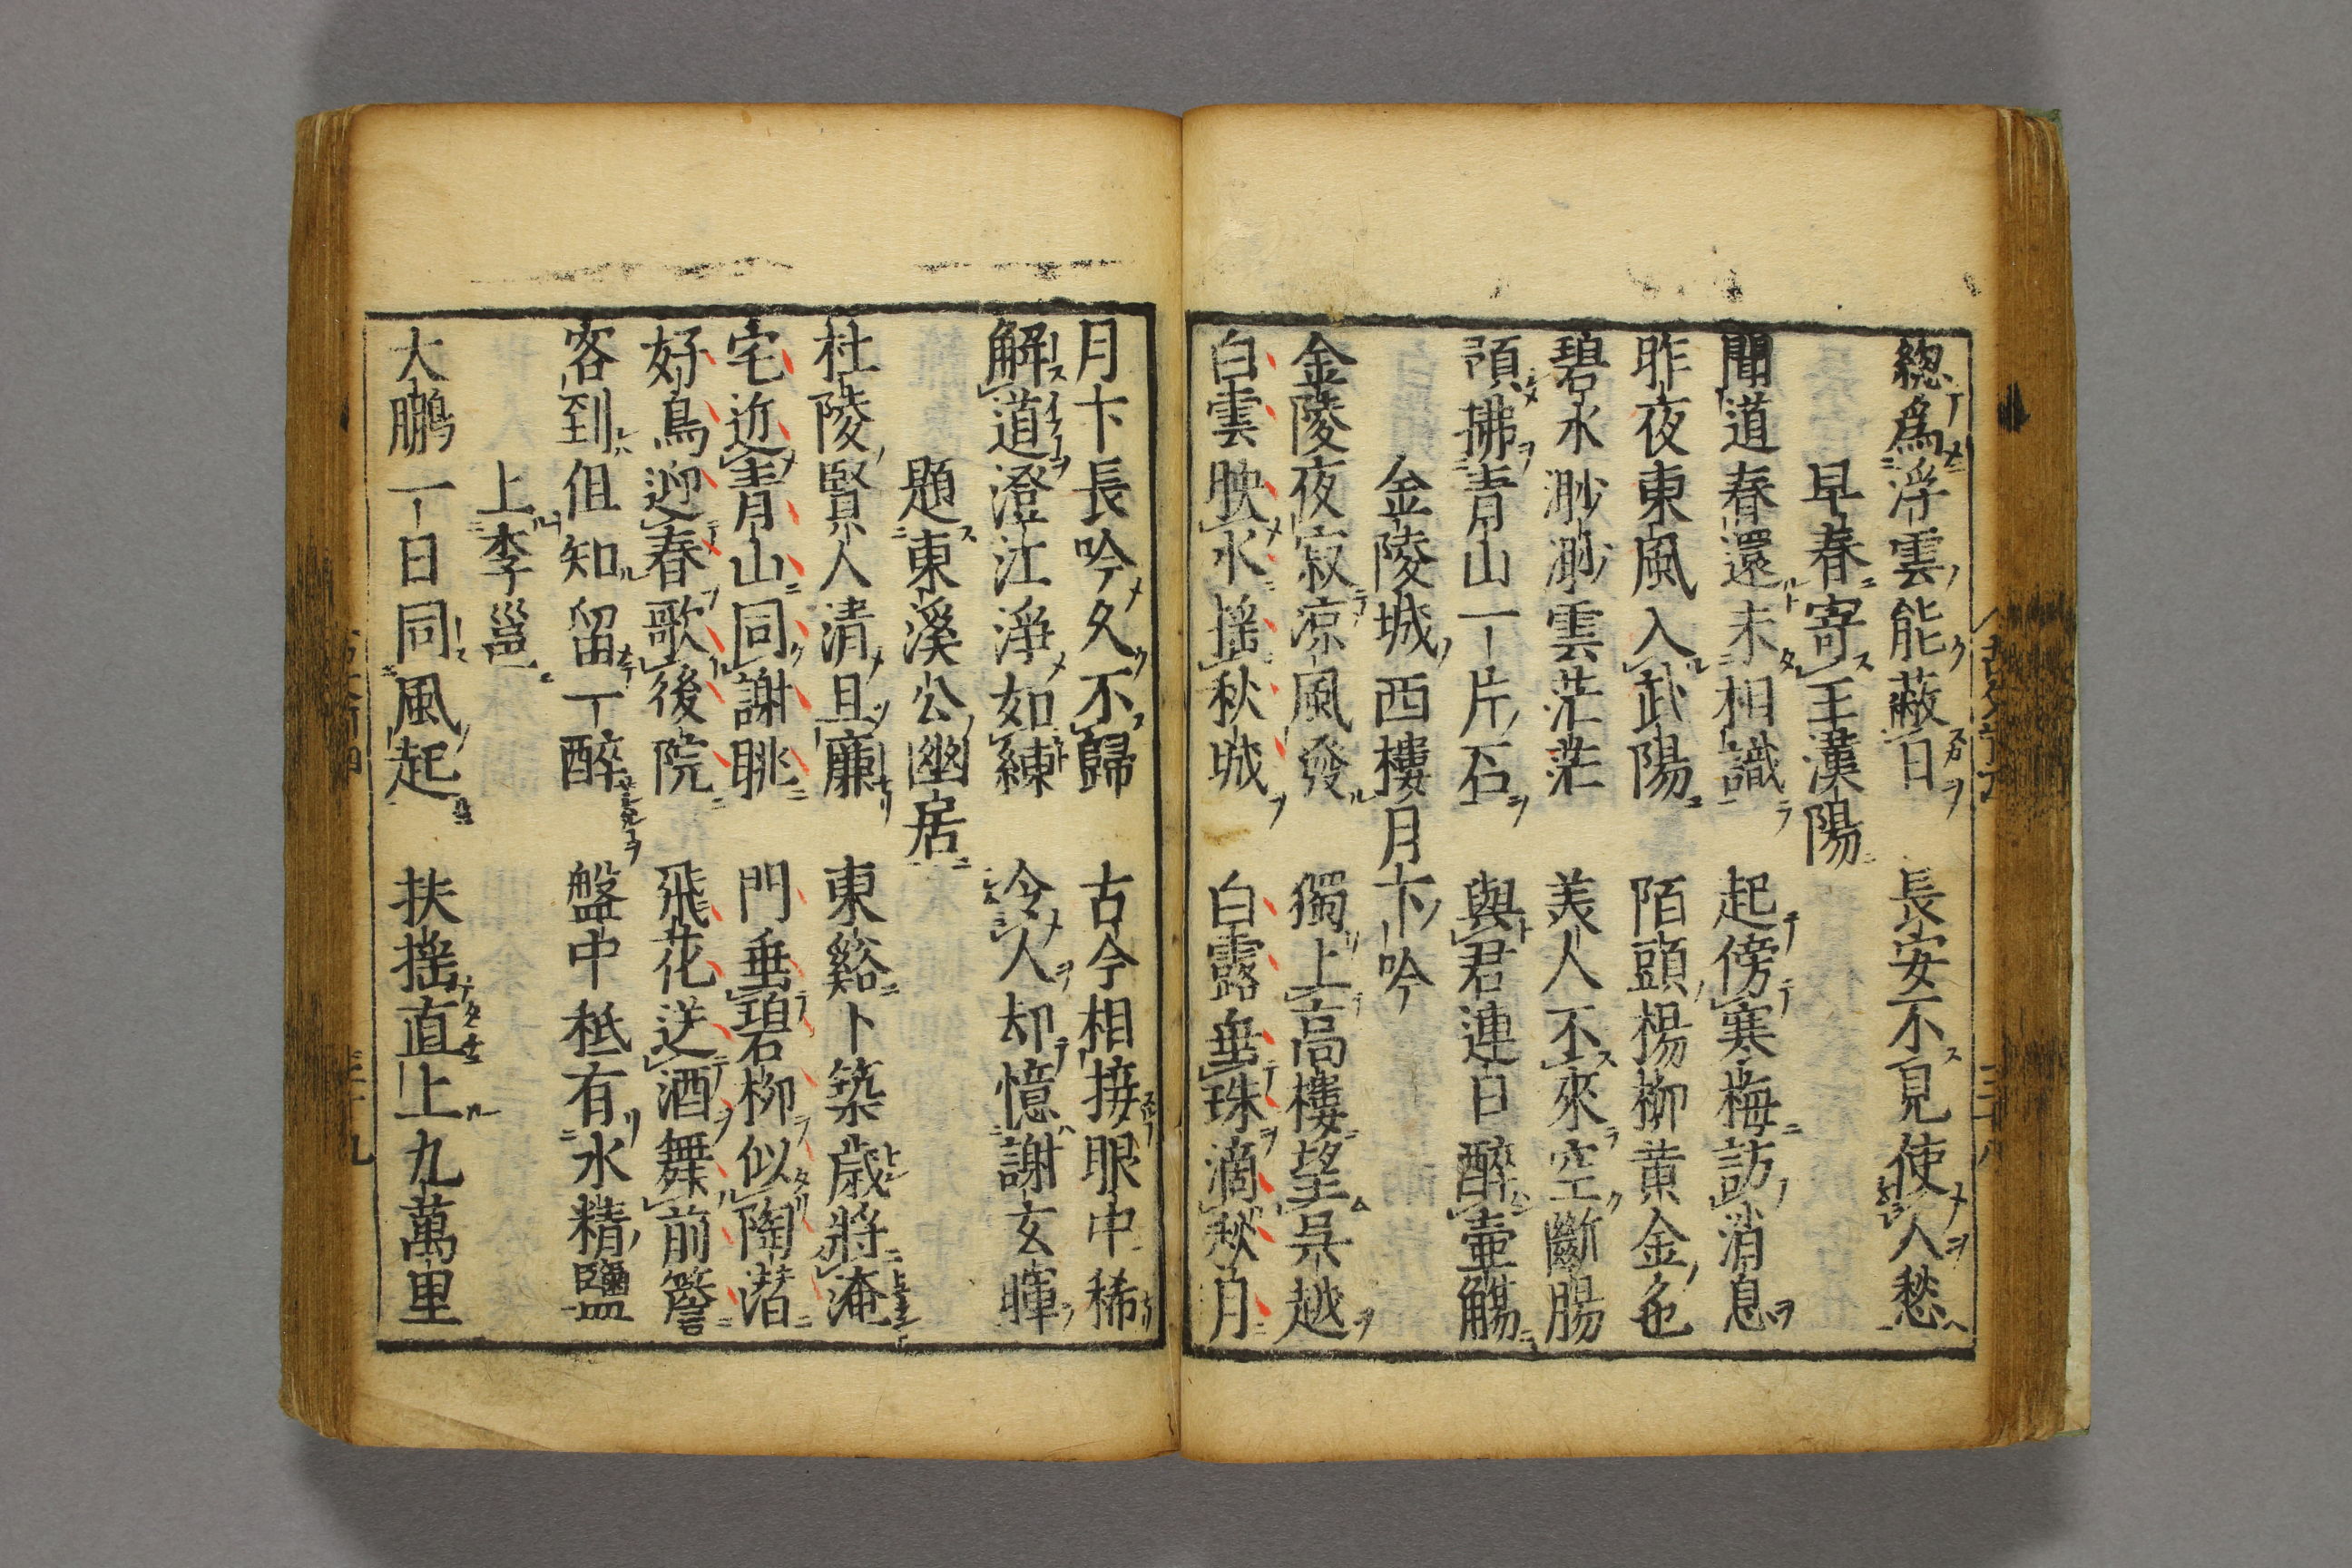 総爲浮雲能蔽日　長安不見使人愁
早春寄王漢陽
聞道春還未相識　起傍寒梅訪消息
昨夜東風入武陽　陌頭楊柳黄金色
碧水渺渺雲茫茫　美人不來空斷腸
預拂青山一片石　與君連日醉壷觴
金陵城西樓月下吟
金陵夜寂凉風發　獨上高樓望吴越
白雲映水揺秋城　白露垂珠滴秋月
月下長吟久不歸　古今相接眼中稀
解道澄江淨如練　令人却憶謝玄暉
題東溪公幽居
杜陵賢人清且廉　東谿卜築歳將淹
宅近青山同謝眺　門垂碧柳似陶潜
好鳥迎春歌後院　飛花送酒舞前簷
客到但知留一醉　盤中秪有水精鹽
上李邕
大鵬一日同風起　扶揺直上九萬里